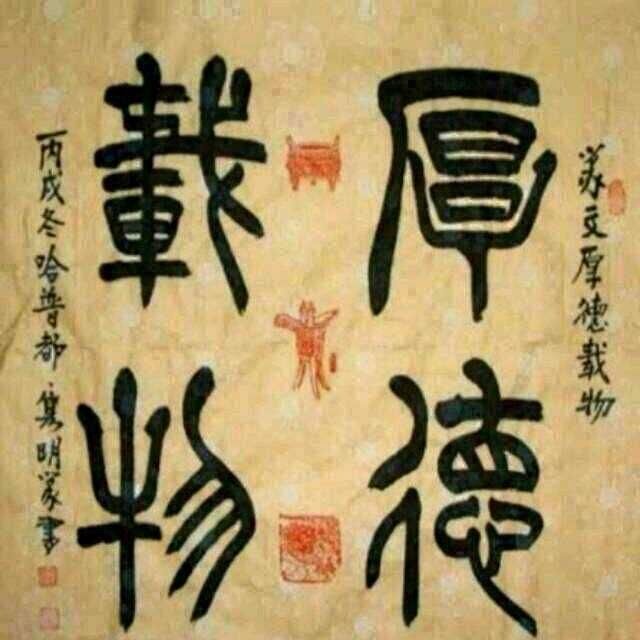 篆文厚德载物
厚德
載物
丙戌冬哈普都·集明篆書